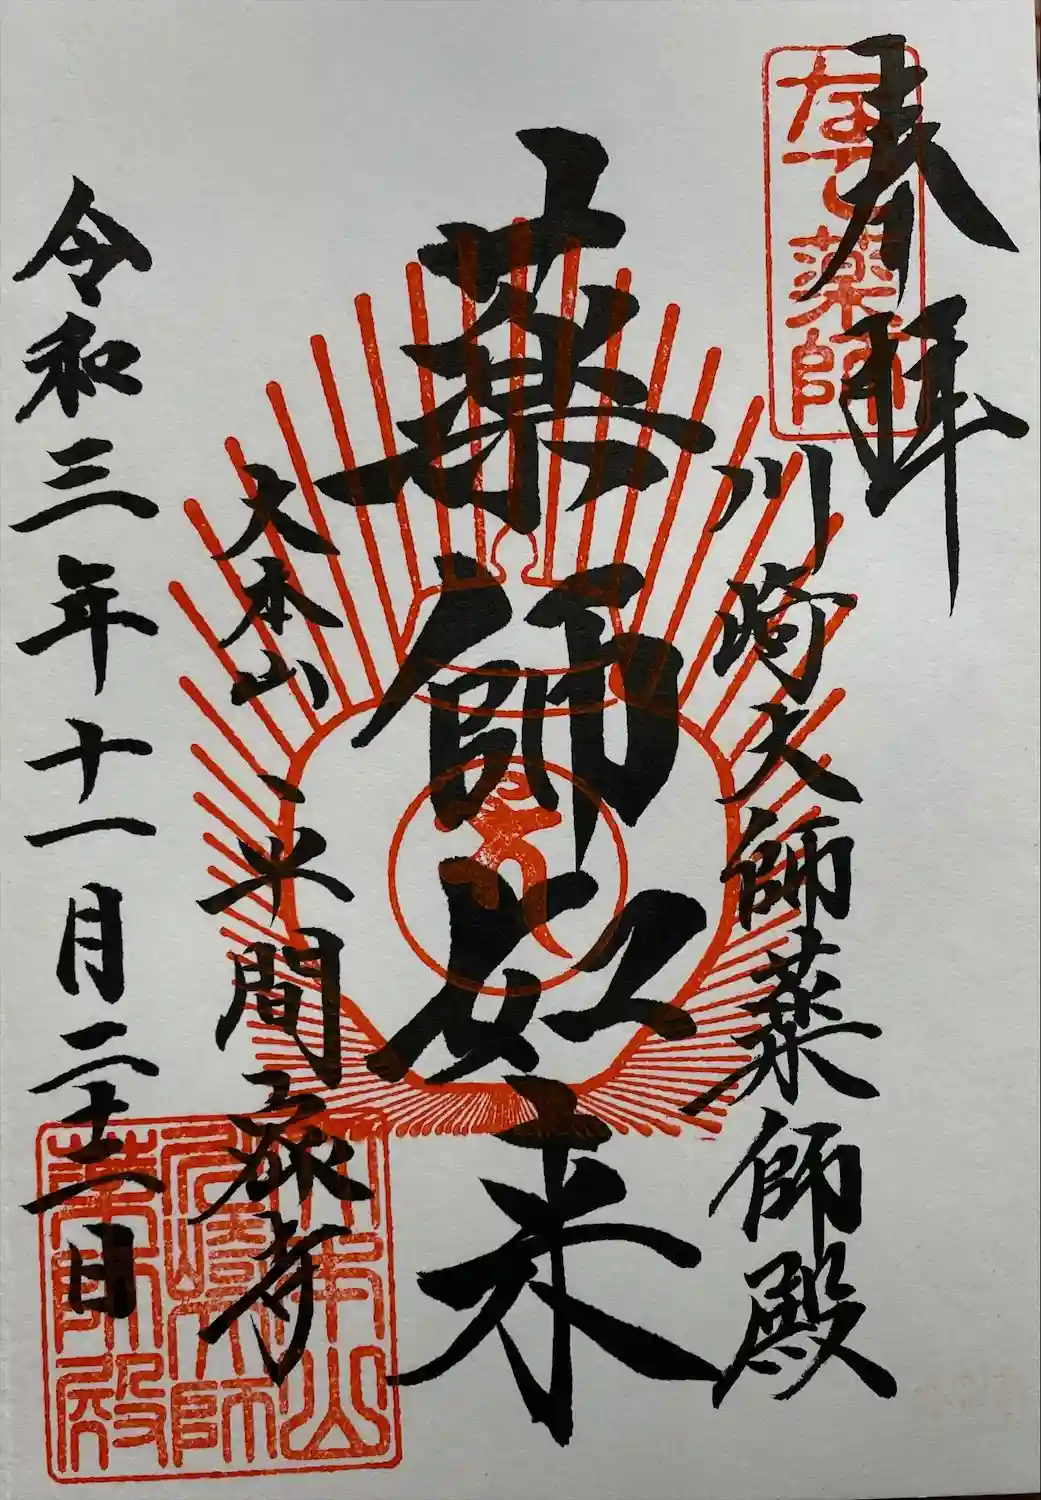 奉拝
なで薬師
川崎大師薬師殿
薬師如来
大本山
平間寺
令和三年十一月二十二日
大本山
川崎大師
薬師殿